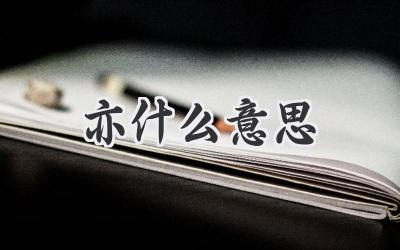 亦什么意思